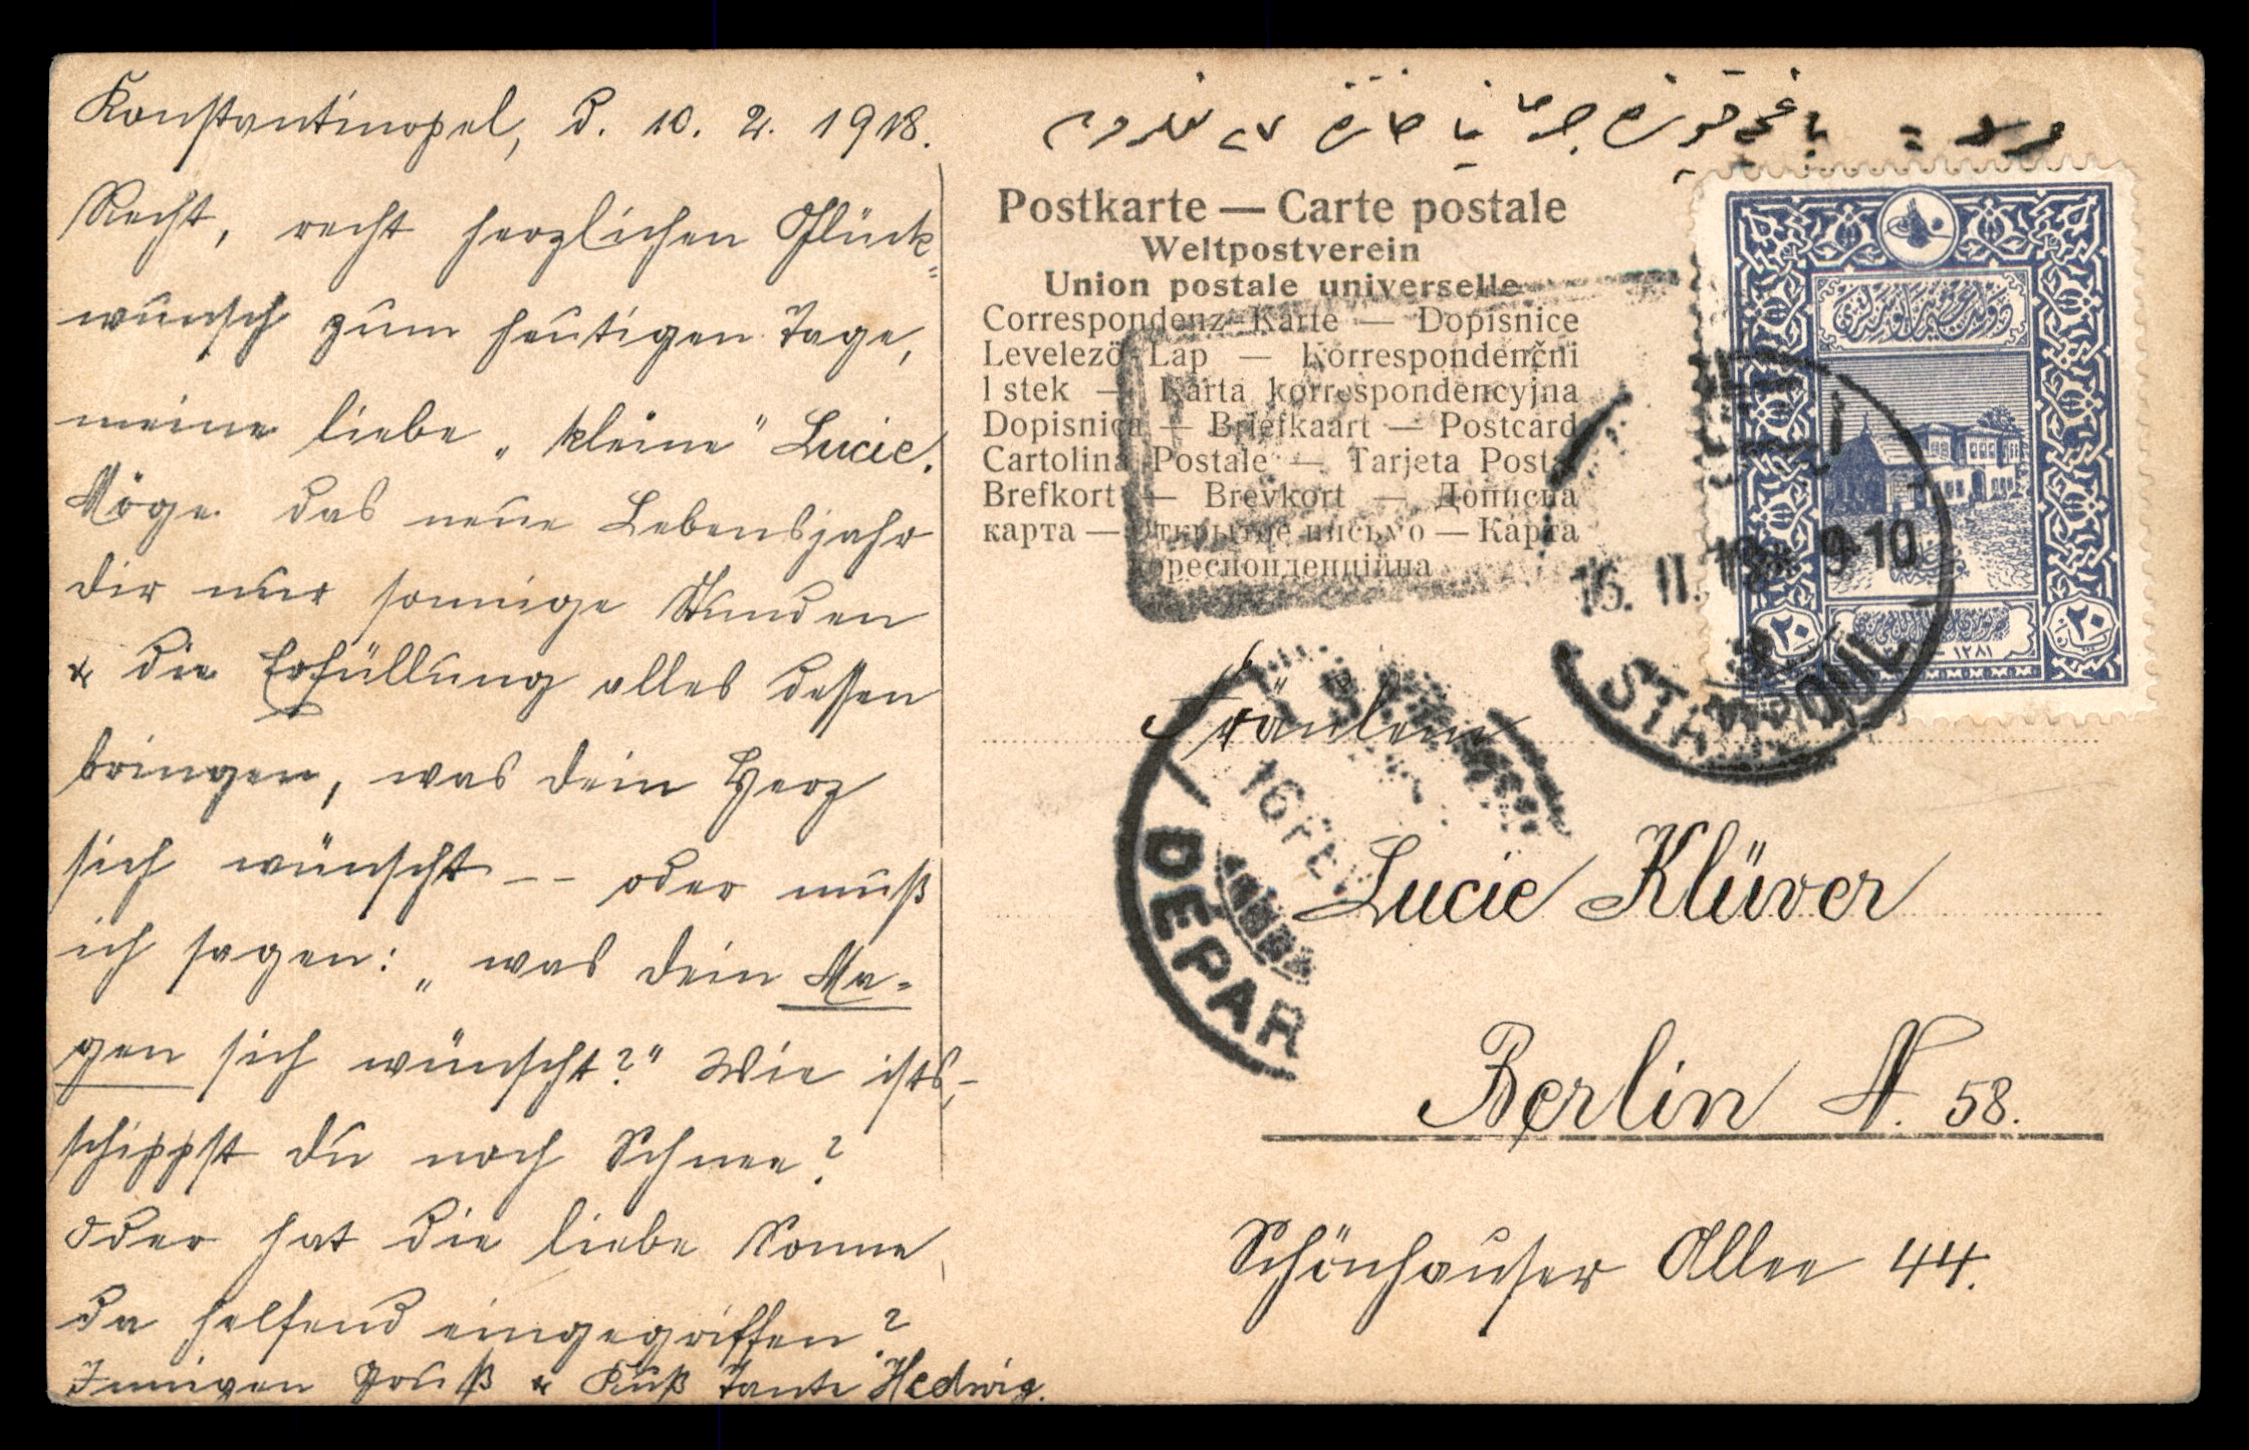 Konstantinopel, d. 10. 2. 1918.
Recht, recht herzlichen Glück-
wunsch zum heutigen Tage,
meine liebe „kleine" Lucie.
Möge das neue Lebensjahr
dir nur sonnige Stunden
& die Erfüllung alles dessen
bringen, was dein Herz
sich wünscht -- oder muß
ich sagen: „was dein Ma-
gen sich wünscht?" Wie ists,-
schippst du noch Schnee?
Oder hat die liebe Sonne
da helfend eingegriffen?
Innigen Gruß & Kuß Tante Hedwig.
Postkarte — Carte postale
Weltpostverein
Union postale universelle
Correspondenz-Karte — Dopisnice
Levelező-Lap — Korrespondenční
lístek — Karta korrespondencyjna
Dopisnica — Briefkaart — Postcard
Cartolina Postale — Tarjeta Postal
Brefkort — Brevkort — Дописна
карта — Открытое письмо — Карта
кореспонденційна
16. II. 18 9-10
STAMBOUL
٢٠ ١٢٨١ ٢٠
16 FEV
DÉPART
Fräulein
Lucie Klüver
Berlin N. 58.
Schönhauser Allee 44.